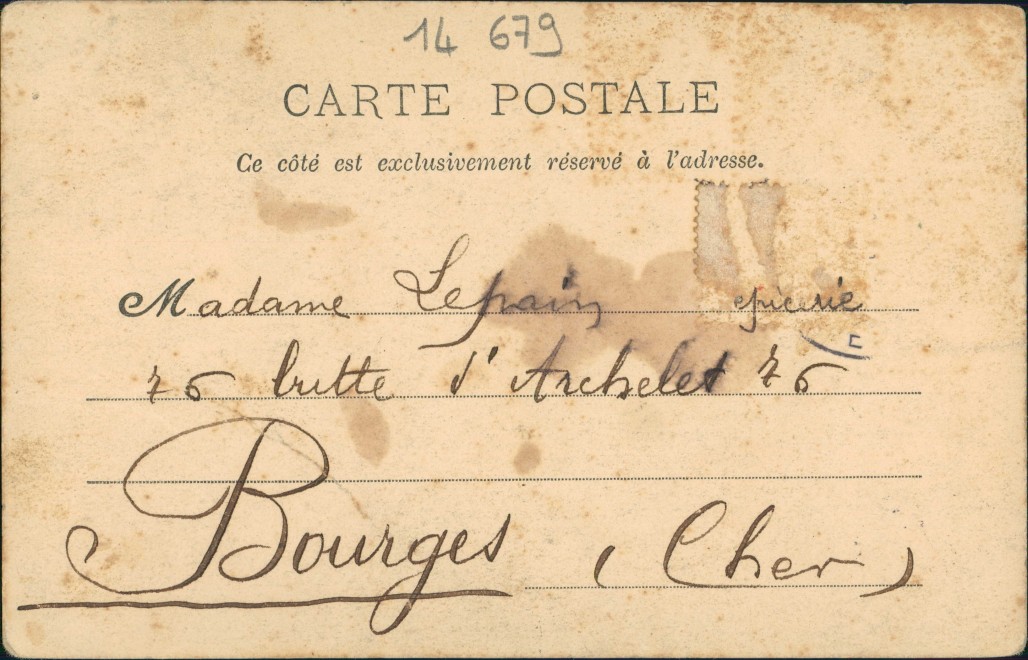 14 679
CARTE POSTALE
Ce côté est exclusivement réservé à l'adresse.
Madame Lepain epicerie
76 butte d'Archelet 76
Bourges (Cher)